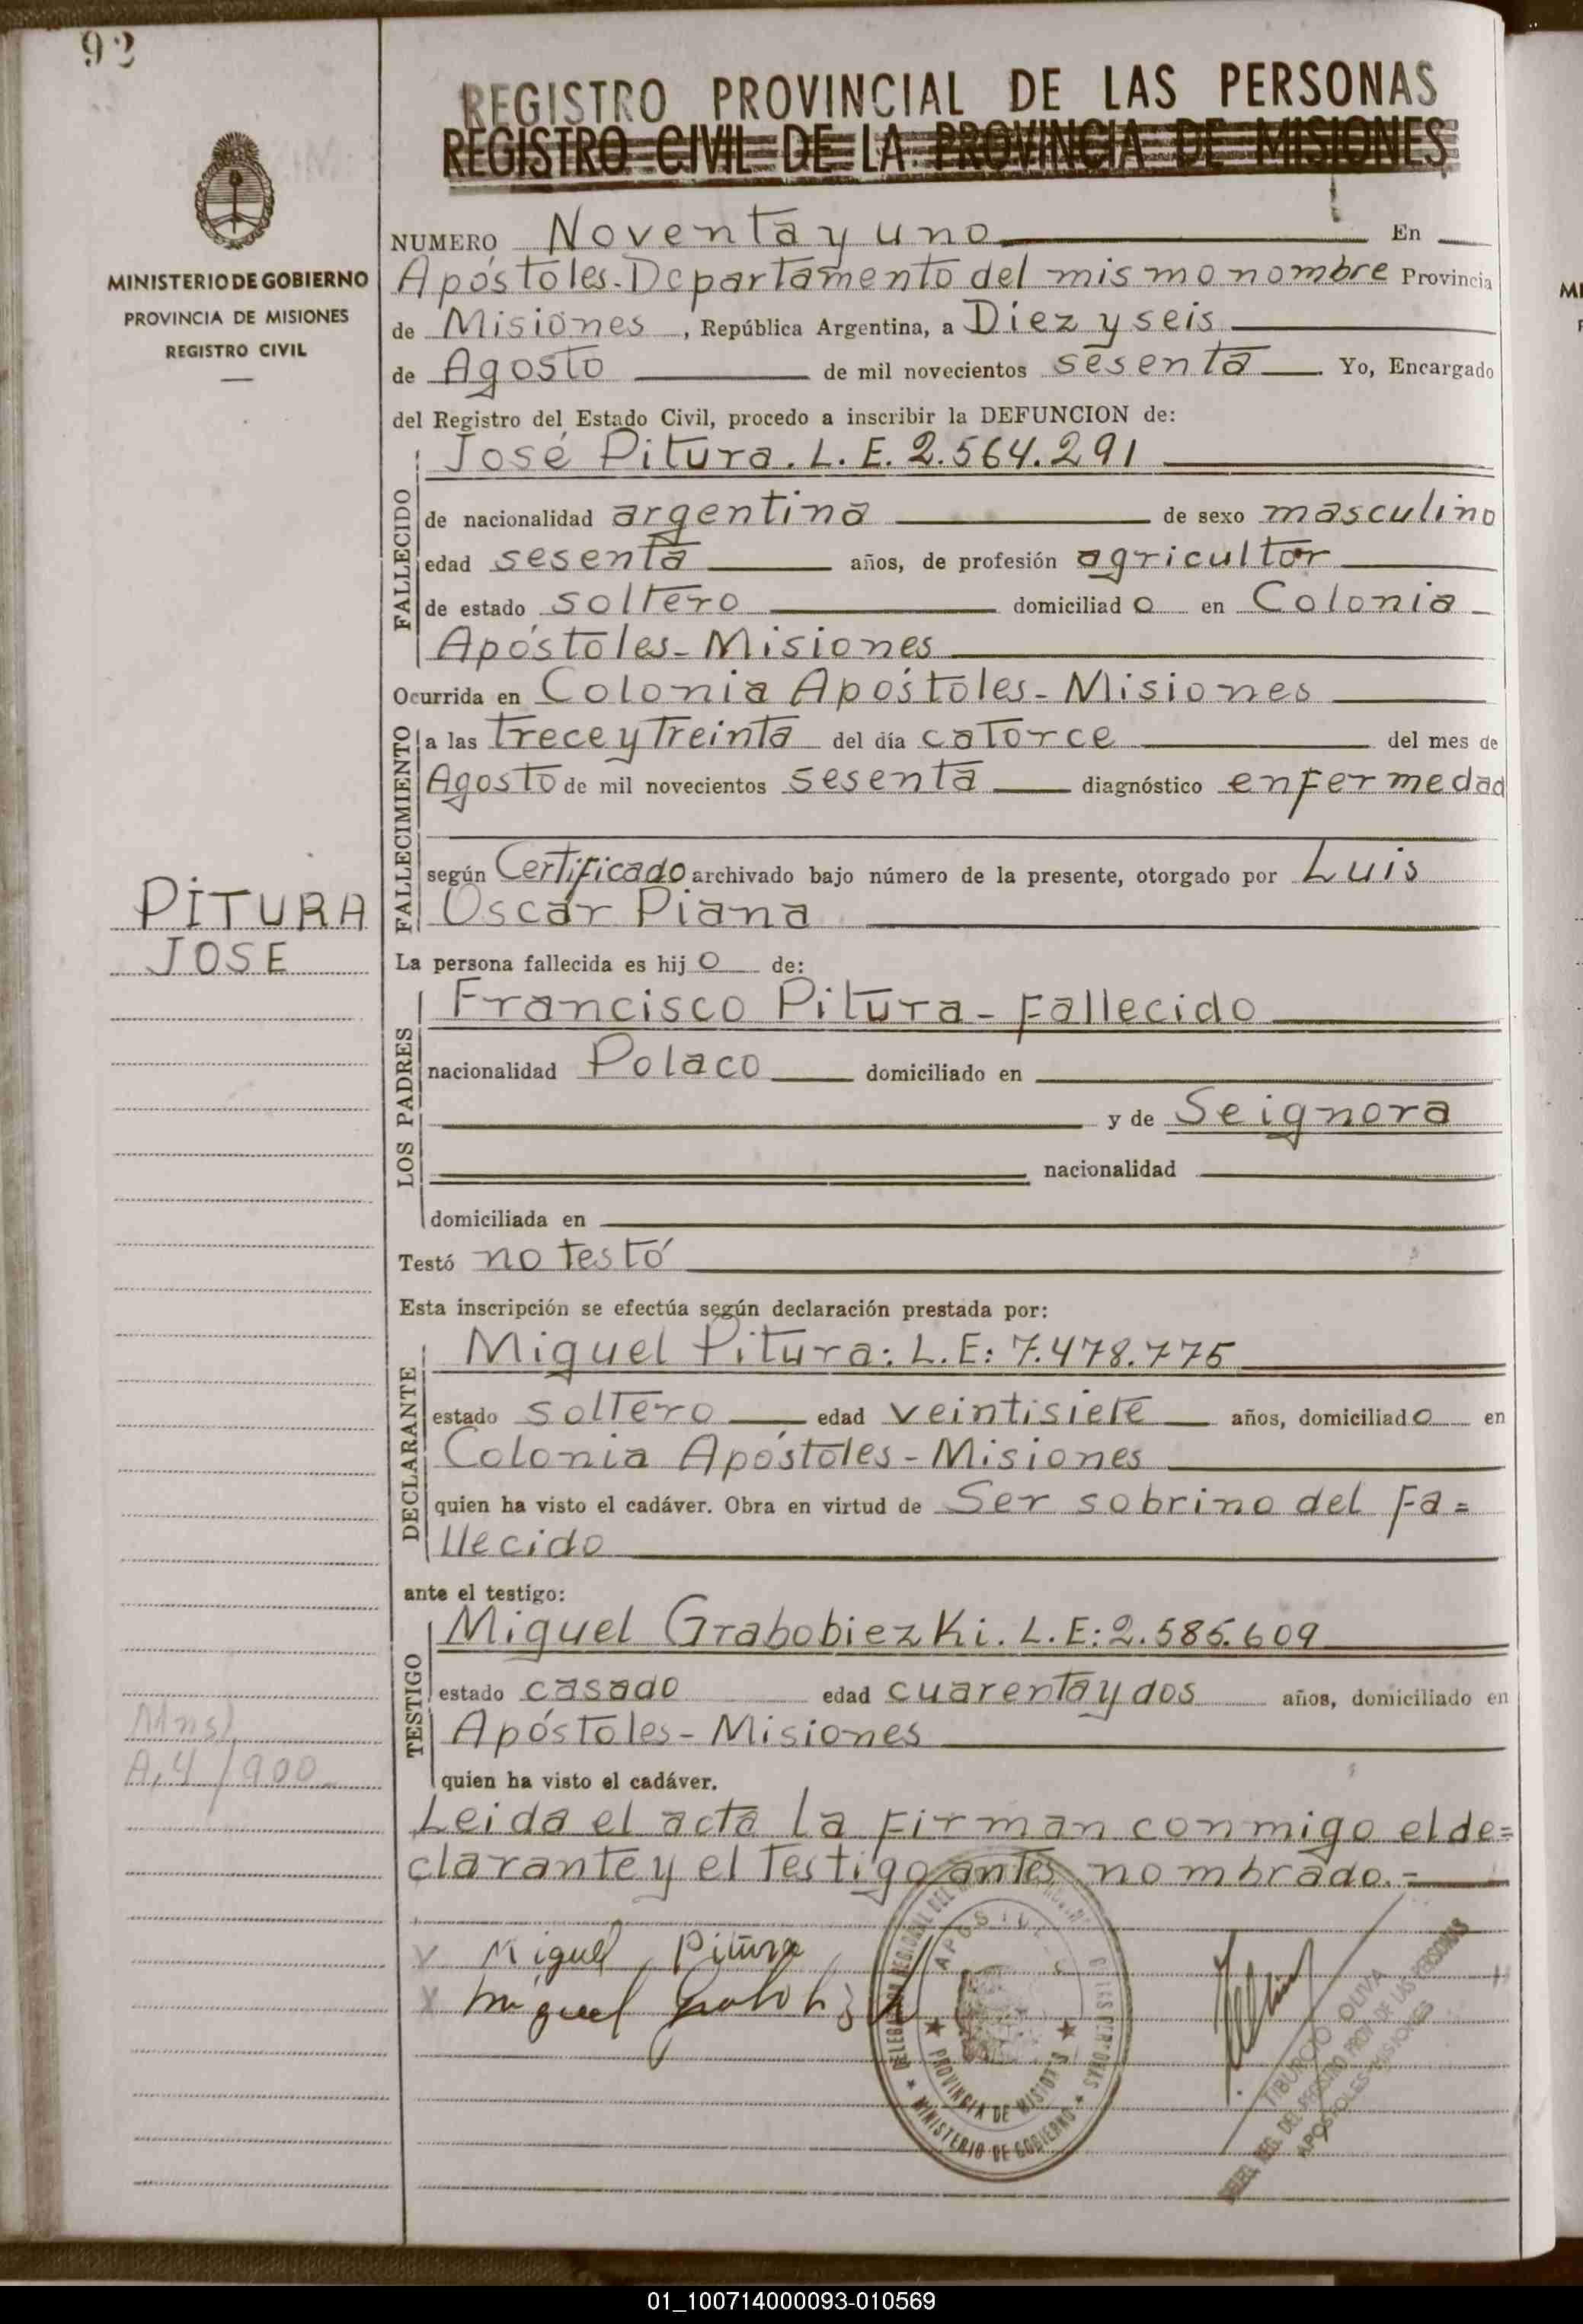 92
REGISTRO PROVINCIAL DE LAS PERSONAS
REGISTRO CIVIL DE LA PROVINCIA DE MISIONES
MINISTERIO DE GOBIERNO
PROVINCIA DE MISIONES
REGISTRO CIVIL
NUMERO Noventa y uno En
Apóstoles-Departamento del mismo nombre Provincia
de Misiones, República Argentina, a Diez y seis
de Agosto de mil novecientos sesenta Yo, Encargado
del Registro del Estado Civil, procedo a inscribir la DEFUNCION de:
FALLECIDO
José Pitura. L. E. 2.564.291
de nacionalidad argentina de sexo masculino
edad sesenta años, de profesión agricultor
de estado soltero domiciliado en Colonia
Apóstoles-Misiones
Ocurrida en Colonia Apóstoles-Misiones
FALLECIMIENTO
a las trece y Treinta del día catorce del mes de
Agosto de mil novecientos sesenta diagnóstico enfermedad
según Certificado archivado bajo número de la presente, otorgado por Luis
Oscar Piana
PITURA
JOSE
La persona fallecida es hijo de:
LOS PADRES
Francisco Pitura-Fallecido
nacionalidad Polaco domiciliado en
y de Seignora
nacionalidad
domiciliada en
Testó no testó
Esta inscripción se efectúa según declaración prestada por:
DECLARANTE
Miguel Pitura: L.E: 7.478.775
estado soltero edad veintisiete años, domiciliado en
Colonia Apóstoles-Misiones
quien ha visto el cadáver. Obra en virtud de Ser sobrino del Fa=
llecido
ante el testigo:
TESTIGO
Miguel Grabobiezki. L.E: 2.585.609
estado casado edad cuarenta y dos años, domiciliado en
Apóstoles-Misiones
quien ha visto el cadáver.
A, 4/900
Leida el acta la firman conmigo el de=
clarante y el Testigo antes nombrado.=
Miguel Pitura
Miguel
PROVINCIA DE MISIONES
MINISTERIO DE GOBIERNO
TIBURCIO OLIVA
DELEG. REG. DEL REGISTRO PROV. DE LAS PERSONAS
APOSTOLES-MISIONES
01_100714000093-010569